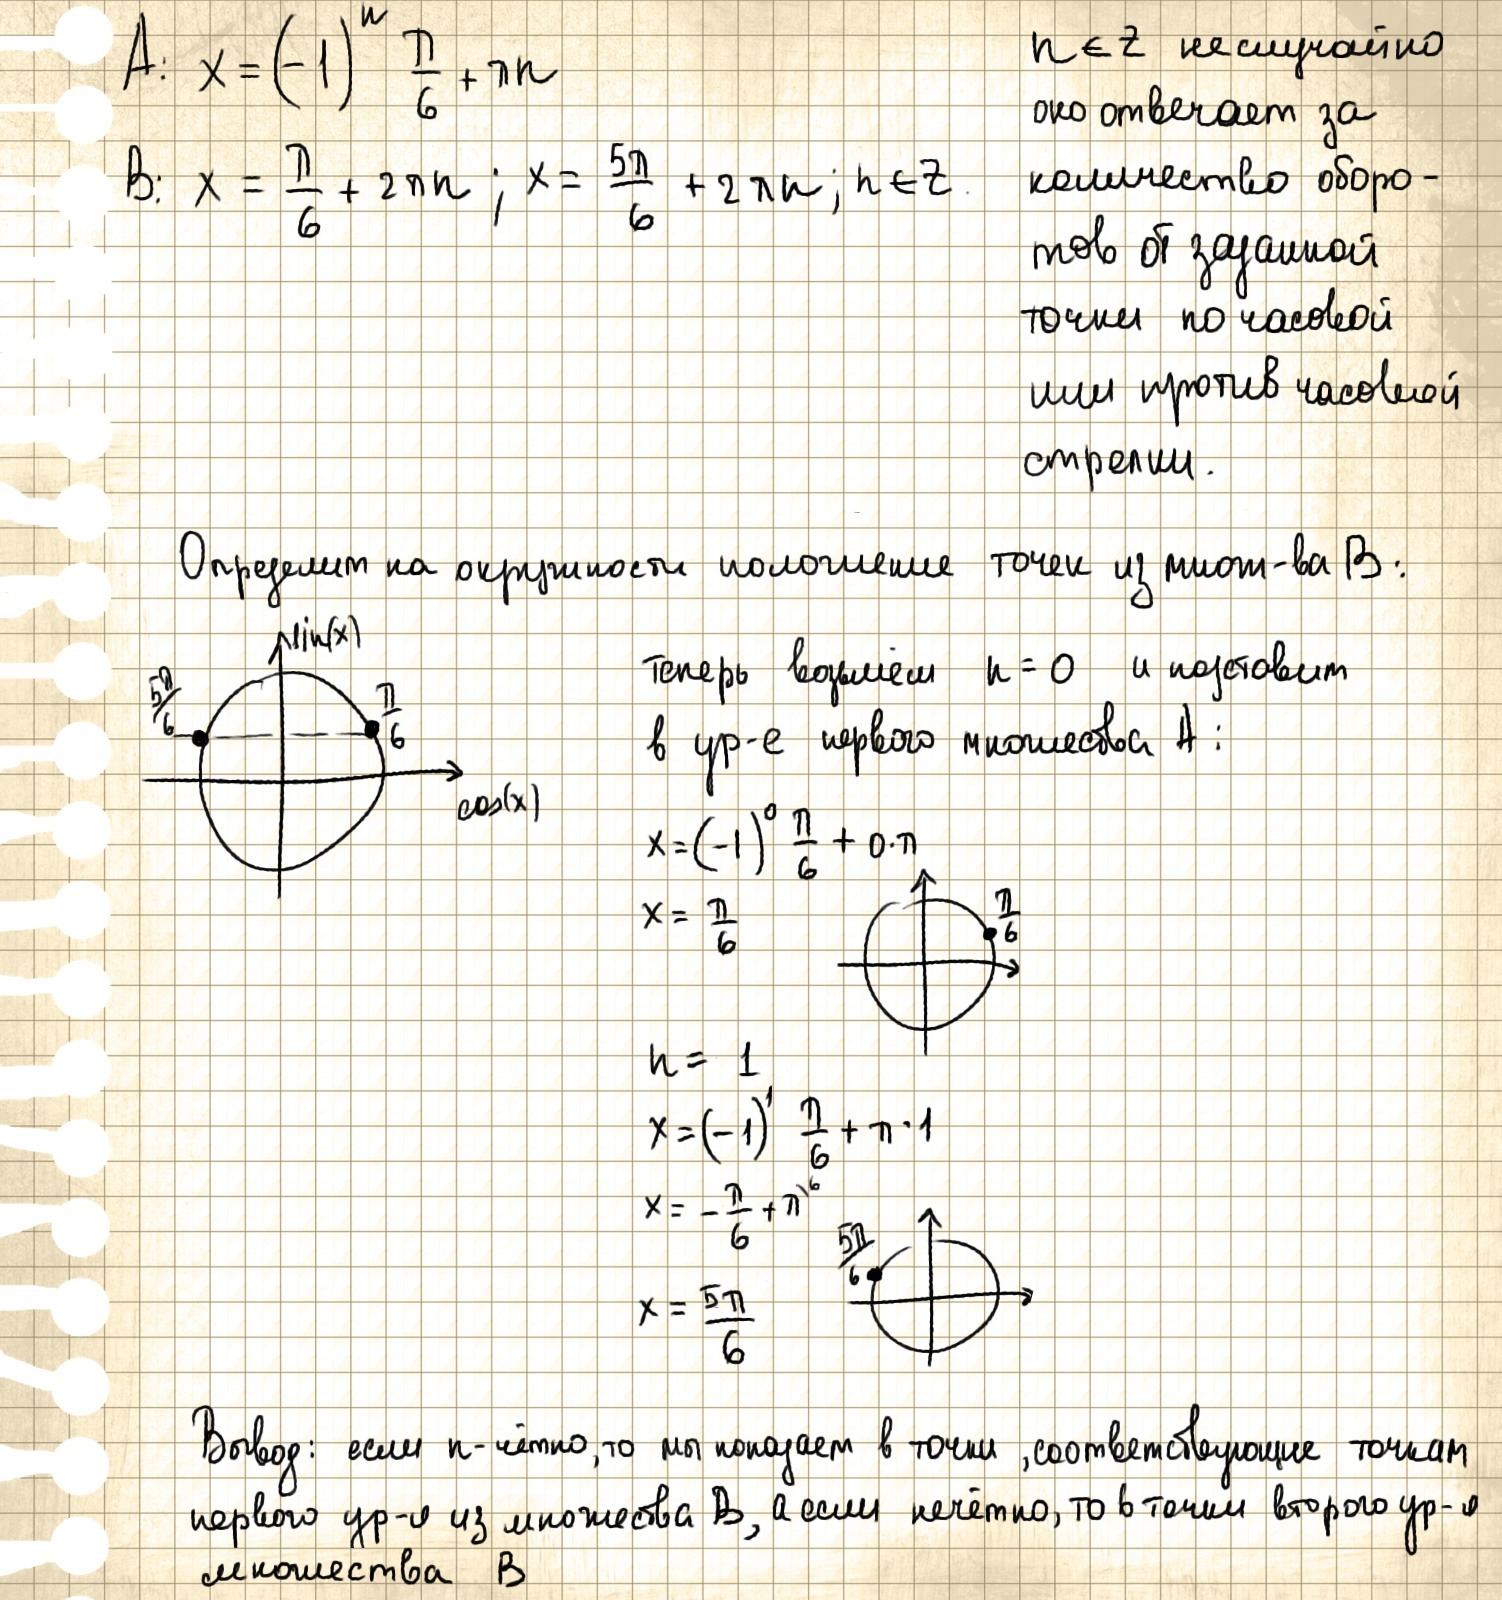 A: x = (-1)^n π/6 + πn
B: x = π/6 + 2πn ; x = 5π/6 + 2πn ; n ∈ Z.
n ∈ Z неслучайно
оно отвечает за
количество оборо-
тов от заданной
точки по часовой
или против часовой
стрелки.
Определим на окружности положение точек из множ-ва B:
sin(x)
5π/6
π/6
cos(x)
Теперь возьмём n = 0 и подставим
в ур-е первого множества A:
x = (-1)^0 π/6 + 0·π
x = π/6
π/6
n = 1
x = (-1)^1 π/6 + π·1
x = -π/6 + π^\6
5π/6
x = 5π/6
Вывод: если n-чётно, то мы попадаем в точки, соответствующие точкам
первого ур-я из множества B, а если нечётно, то в точки второго ур-я
множества B